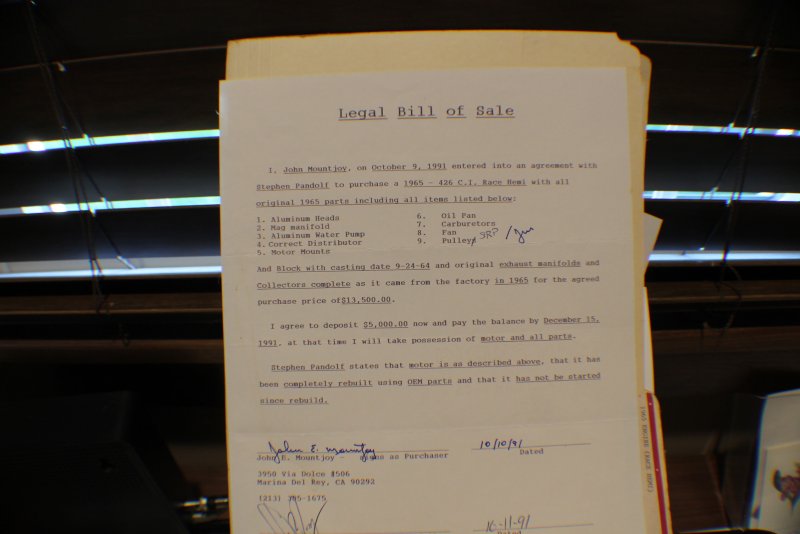 Legal Bill of Sale
I, John Mountjoy, on October 9, 1991 entered into an agreement with
Stephen Pandolf to purchase a 1965 - 426 C.I. Race Hemi with all
original 1965 parts including all items listed below:
1. Aluminum Heads
2. Mag manifold
3. Aluminum Water Pump
4. Correct Distributor
5. Motor Mounts
6. Oil Pan
7. Carburetors
8. Fan
9. Pulley SRP
And Block with casting date 9-24-64 and original exhaust manifolds and
Collectors complete as it came from the factory in 1965 for the agreed
purchase price of$13,500.00.
I agree to deposit $5,000.00 now and pay the balance by December 15,
1991, at that time I will take possession of motor and all parts.
Stephen Pandolf states that motor is as described above, that it has
been completely rebuilt using OEM parts and that it has not be started
since rebuild.
John E. Mountjoy 10/10/91
John E. Mountjoy - signs as Purchaser Dated
3950 Via Dolce #506
Marina Del Rey, CA 90292
(213) 305-1675
10-11-91
Dated